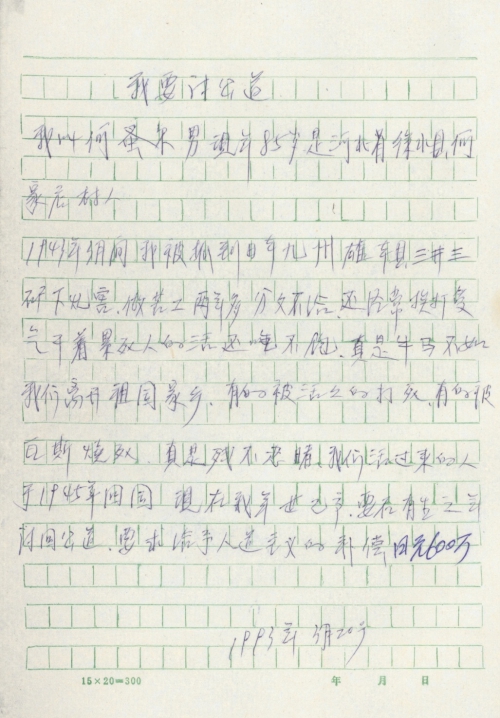 我要讨公道
我叫何 男 现年85岁是河北省徐水县何
家店村人
1943年3月间 我被抓到日本九州 县三井三
矿下 做苦工两年多 分文不给 还经常挨打受
气干着累死人的活还 不饱 真是牛马不如
我们离开祖国家乡 有的被活生生的打死 有的被
瓦斯烧死 真是残不忍睹 我们活过来的人
于1945年回国 现在我年 要在有生之年
讨回公道 要求给予人道主义的补偿日元600万
1993年 月20号
15×20=300 年 月 日